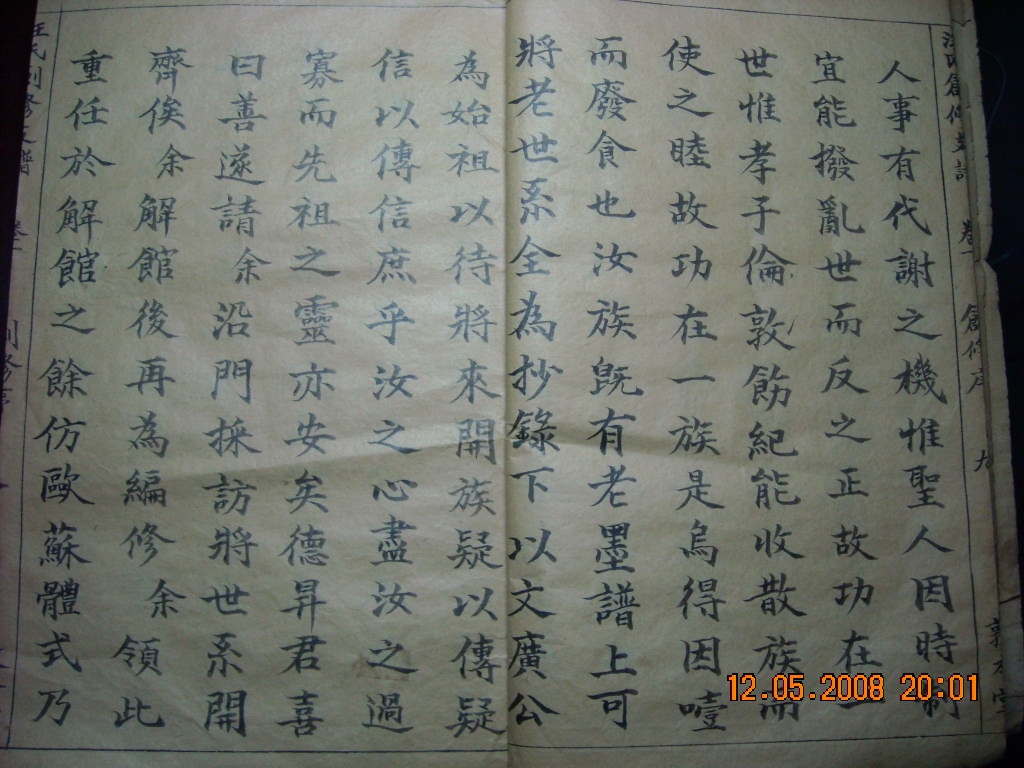 人事有代謝之機惟聖人因時制
宜能撥亂世而反之正故功在一
世惟孝子倫敦飭紀能收散族而
使之睦故功在一族是烏得因噎
而廢食也汝族既有老墨譜上可
將老世系全為抄錄下以文廣公
為始祖以待將來開族疑以傳疑
信以傳信庶乎汝之心盡汝之過
寡而先祖之靈亦安矣德昇君喜
曰善遂請余沿門採訪將世系開
齊俟余解館後再為編修余領此
重任於解館之餘仿歐蘇體式乃
汪氏創修支譜 卷一 創修序
12.05.2008 20:01